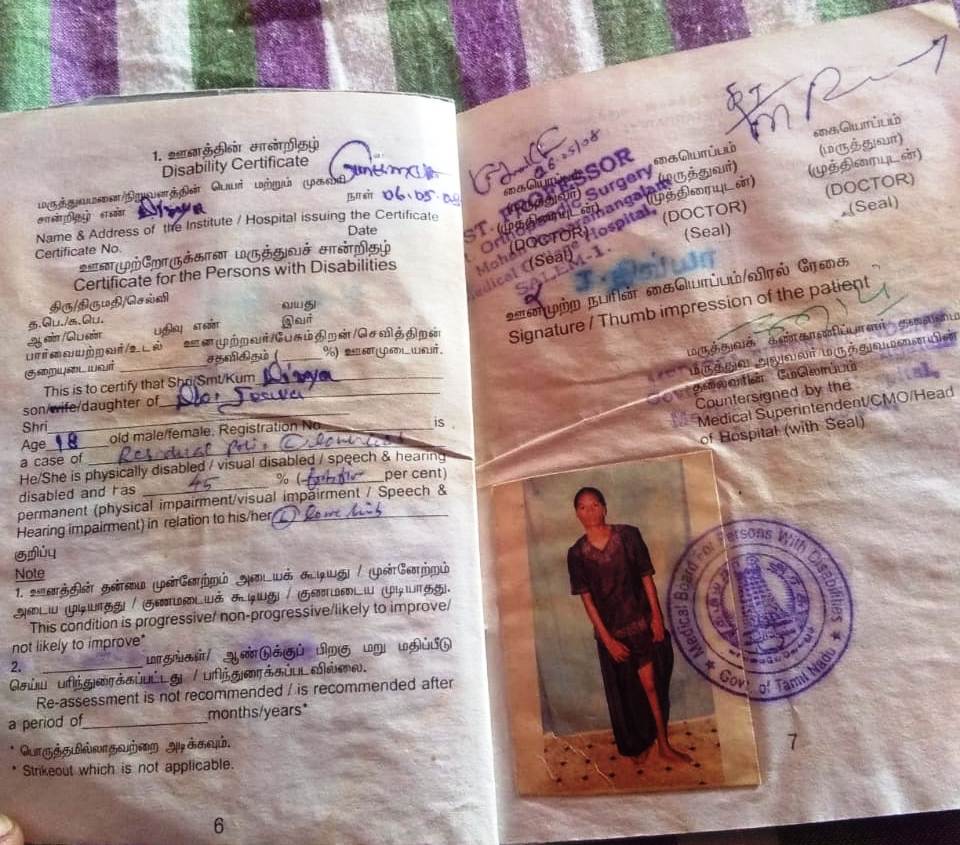 1. ஊனத்தின் சான்றிதழ்
Disability Certificate
மருத்துவமனை/நிறுவனத்தின் பெயர் மற்றும் முகவரி
சான்றிதழ் எண் Divya நாள் 06.05.08
Name & Address of the Institute / Hospital issuing the Certificate
Certificate No. Date
ஊனமுற்றோருக்கான மருத்துவச் சான்றிதழ்
Certificate for the Persons with Disabilities
திரு/திருமதி/செல்வி வயது
த.பெ./க.பெ. இவர்
ஆண்/பெண் பதிவு எண் ஊனமுற்றவர்/பேசும்திறன்/செவித்திறன்
பார்வையற்றவர்/உடல் சதவிகிதம் ( %) ஊனமுடையவர்.
குறையுடையவர்
This is to certify that Shri/Smt/Kum Divya
son/wife/daughter of D/o.
Shri
Age 18 old male/female. Registration No is
a case of Residual
He/She is physically disabled / visual disabled / speech & hearing
disabled and has 45 % ( per cent)
permanent (physical impairment/visual impairment / Speech &
Hearing impairment) in relation to his/her (L) lower limb
குறிப்பு
Note
1. ஊனத்தின் தன்மை முன்னேற்றம் அடையக் கூடியது / முன்னேற்றம்
அடைய முடியாதது / குணமடையக் கூடியது / குணமடைய முடியாதது.
This condition is progressive/ non-progressive/likely to improve/
not likely to improve*
2. மாதங்கள்/ ஆண்டுக்குப் பிறகு மறு மதிப்பீடு
செய்ய பரிந்துரைக்கப்பட்டது / பரிந்துரைக்கப்படவில்லை.
Re-assessment is not recommended / is recommended after
a period of months/years*
* பொருத்தமில்லாதவற்றை அடிக்கவும்.
* Strikeout which is not applicable.
6
6/05/08
கையொப்பம் கையொப்பம் கையொப்பம்
(மருத்துவர்) (மருத்துவர்) (மருத்துவர்)
(முத்திரையுடன்) (முத்திரையுடன்) (முத்திரையுடன்)
(DOCTOR) (DOCTOR) (DOCTOR)
(Seal) (Seal) (Seal)
ST. PROFESSOR
Orthopaedic Surgery
Mohan Kumaramangalam
Medical College Hospital,
SALEM-1.
J. திவ்யா
ஊனமுற்ற நபரின் கையொப்பம்/விரல் ரேகை
Signature / Thumb impression of the patient
மருத்துவக் கண்காணிப்பாளர் தலைமை
மருத்துவ அலுவலர் மருத்துவமனையின்
தலைவரின் மேலொப்பம்
Countersigned by the
Medical Superintendent/CMO/Head
of Hospital (with Seal)
Medical Board For Persons With Disabilities
Govt. of Tamil Nadu
7